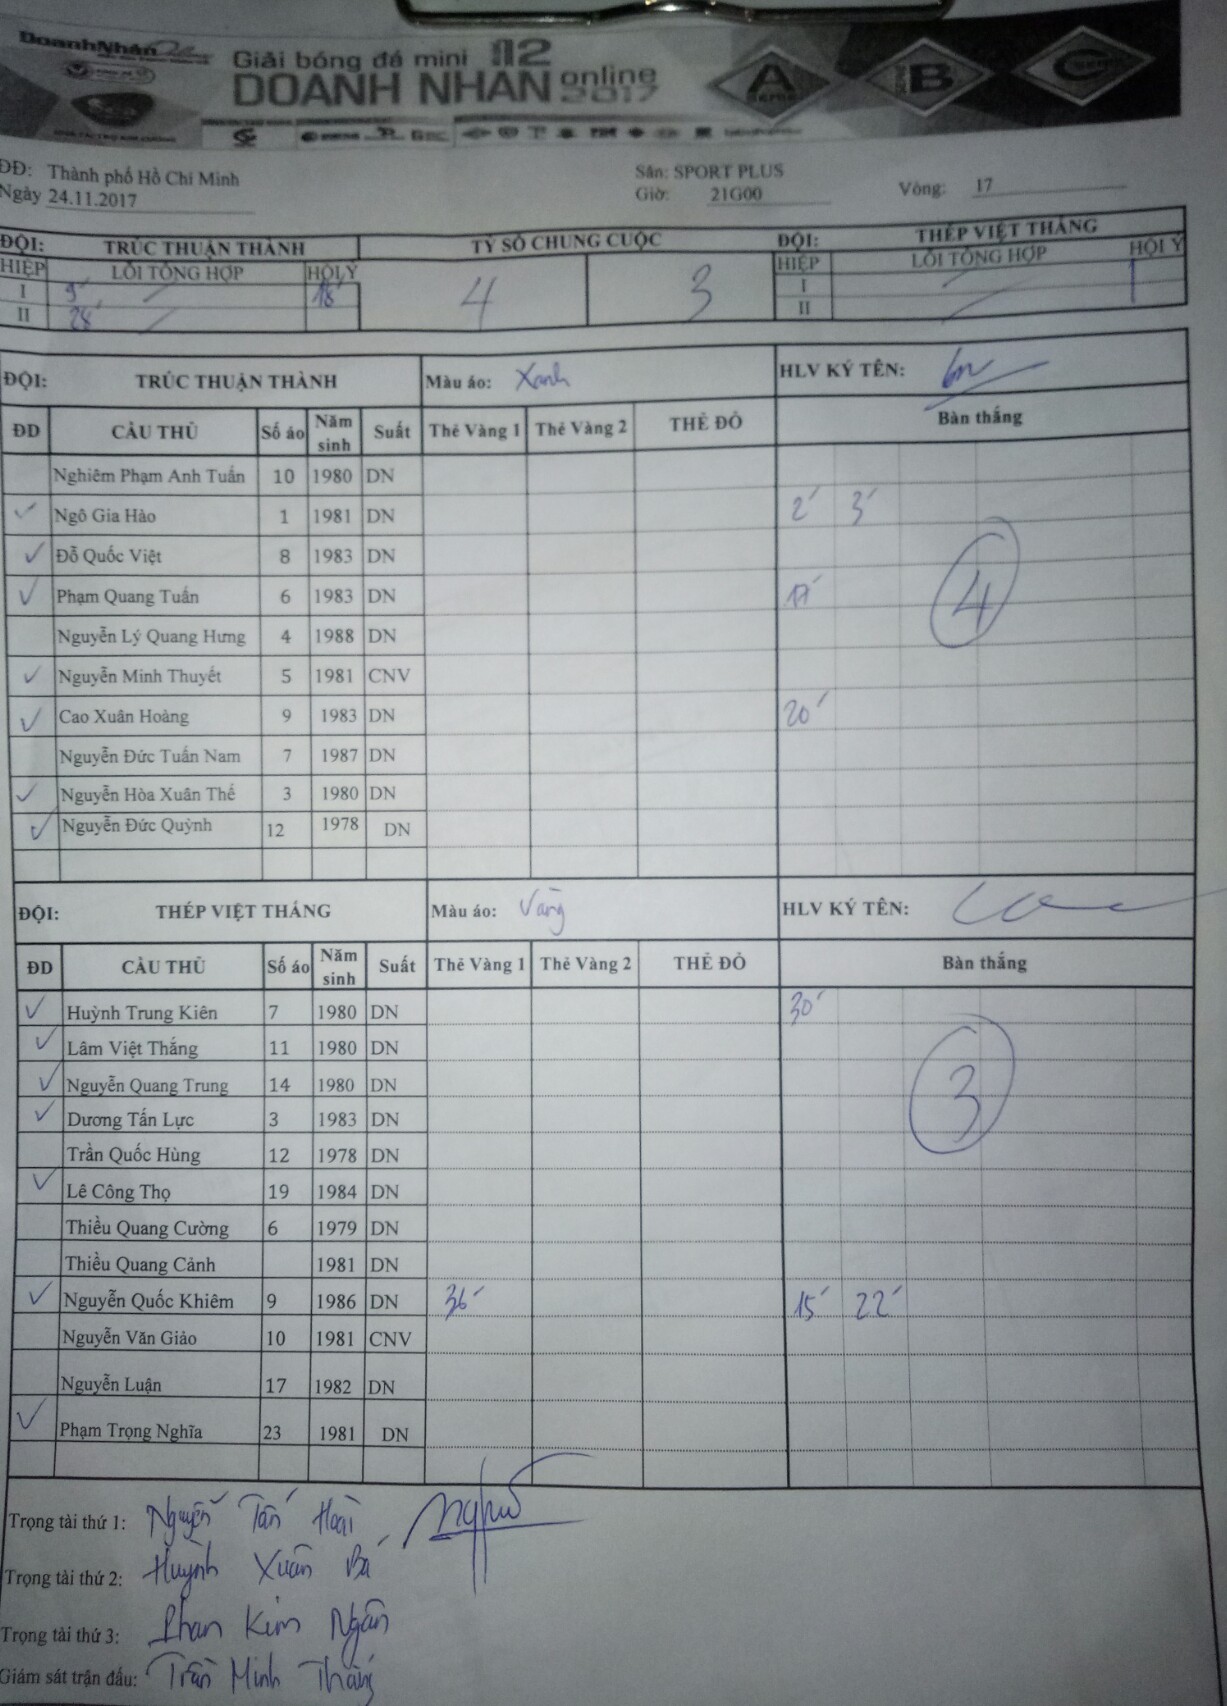 DoanhNhân
Giải bóng đá mini 112
DOANH NHÂN online 2017
A SERIE
SERIE B
C SERIE
ĐĐ: Thành phố Hồ Chí Minh Sân: SPORT PLUS
Ngày 24.11.2017 Giờ: 21G00 Vòng: 17
ĐỘI: TRÚC THUẬN THÀNH TỶ SỐ CHUNG CUỘC ĐỘI: THÉP VIỆT THẮNG
HIỆP LỖI TỔNG HỢP HỘI Ý 4 3 HIỆP LỖI TỔNG HỢP HỘI Ý
I 9' 18' I
II 28' II
ĐỘI: TRÚC THUẬN THÀNH Màu áo: Xanh HLV KÝ TÊN:
ĐD CẦU THỦ Số áo Năm sinh Suất Thẻ Vàng 1 Thẻ Vàng 2 THẺ ĐỎ Bàn thắng
Nghiêm Phạm Anh Tuấn 10 1980 DN
✓ Ngô Gia Hào 1 1981 DN 2' 3'
✓ Đỗ Quốc Việt 8 1983 DN
✓ Phạm Quang Tuấn 6 1983 DN 17' 4
Nguyễn Lý Quang Hưng 4 1988 DN
✓ Nguyễn Minh Thuyết 5 1981 CNV
✓ Cao Xuân Hoàng 9 1983 DN 20'
Nguyễn Đức Tuấn Nam 7 1987 DN
✓ Nguyễn Hòa Xuân Thế 3 1980 DN
✓ Nguyễn Đức Quỳnh 12 1978 DN
ĐỘI: THÉP VIỆT THẮNG Màu áo: Vàng HLV KÝ TÊN:
ĐD CẦU THỦ Số áo Năm sinh Suất Thẻ Vàng 1 Thẻ Vàng 2 THẺ ĐỎ Bàn thắng
✓ Huỳnh Trung Kiên 7 1980 DN 30'
✓ Lâm Việt Thắng 11 1980 DN
✓ Nguyễn Quang Trung 14 1980 DN 3
✓ Dương Tấn Lực 3 1983 DN
Trần Quốc Hùng 12 1978 DN
✓ Lê Công Thọ 19 1984 DN
Thiều Quang Cường 6 1979 DN
Thiều Quang Cảnh 1981 DN
✓ Nguyễn Quốc Khiêm 9 1986 DN 36' 15' 22'
Nguyễn Văn Giảo 10 1981 CNV
Nguyễn Luận 17 1982 DN
✓ Phạm Trọng Nghĩa 23 1981 DN
Trọng tài thứ 1: Nguyễn Tấn Hoài
Trọng tài thứ 2: Huỳnh Xuân Bá
Trọng tài thứ 3: Phan Kim Ngân
Giám sát trận đấu: Trần Minh Thắng